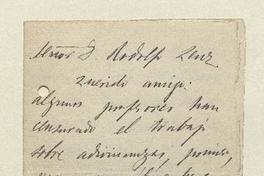 Señor D Rodolfo Lenz
Querido amigo:
algunos profesores han
censurado el trabajo
sobre adivinanzas, primero,